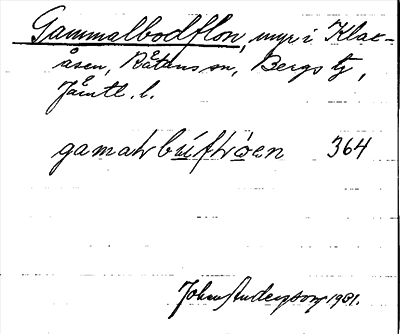 Gammalbodflon, myr i Klax-
åsen, Råtans sn, Bergs tg,
Jämtl. l.
gamaɫrbúftrὸen 364
John Anderzson 1931.